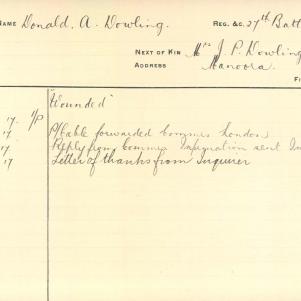 NAME Donald. A. Dowling. REG. &C. 27th Batt
NEXT OF KIN Mrs J. P. Dowling
ADDRESS Manoora.
FI
"Wounded"
17. I/P
17 P/Cable forwarded Commrs London
17 Reply from Commrs Information sent In
17 Letter of thanks from Inquirer